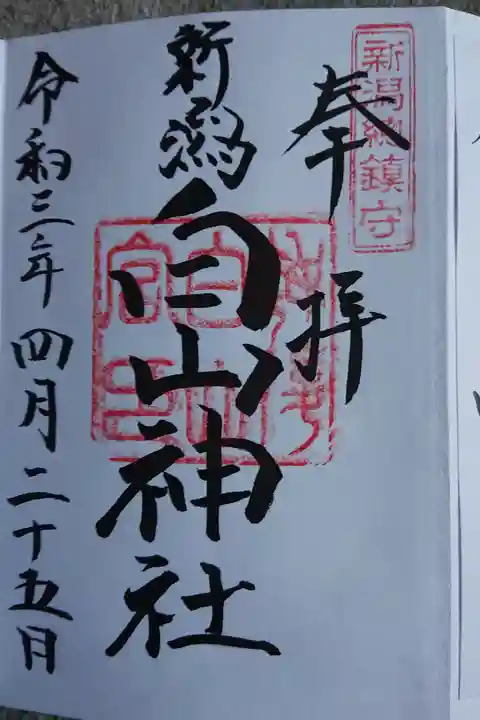 新潟総鎮守
奉拝
新潟
白山神社
令和三年四月二十五日